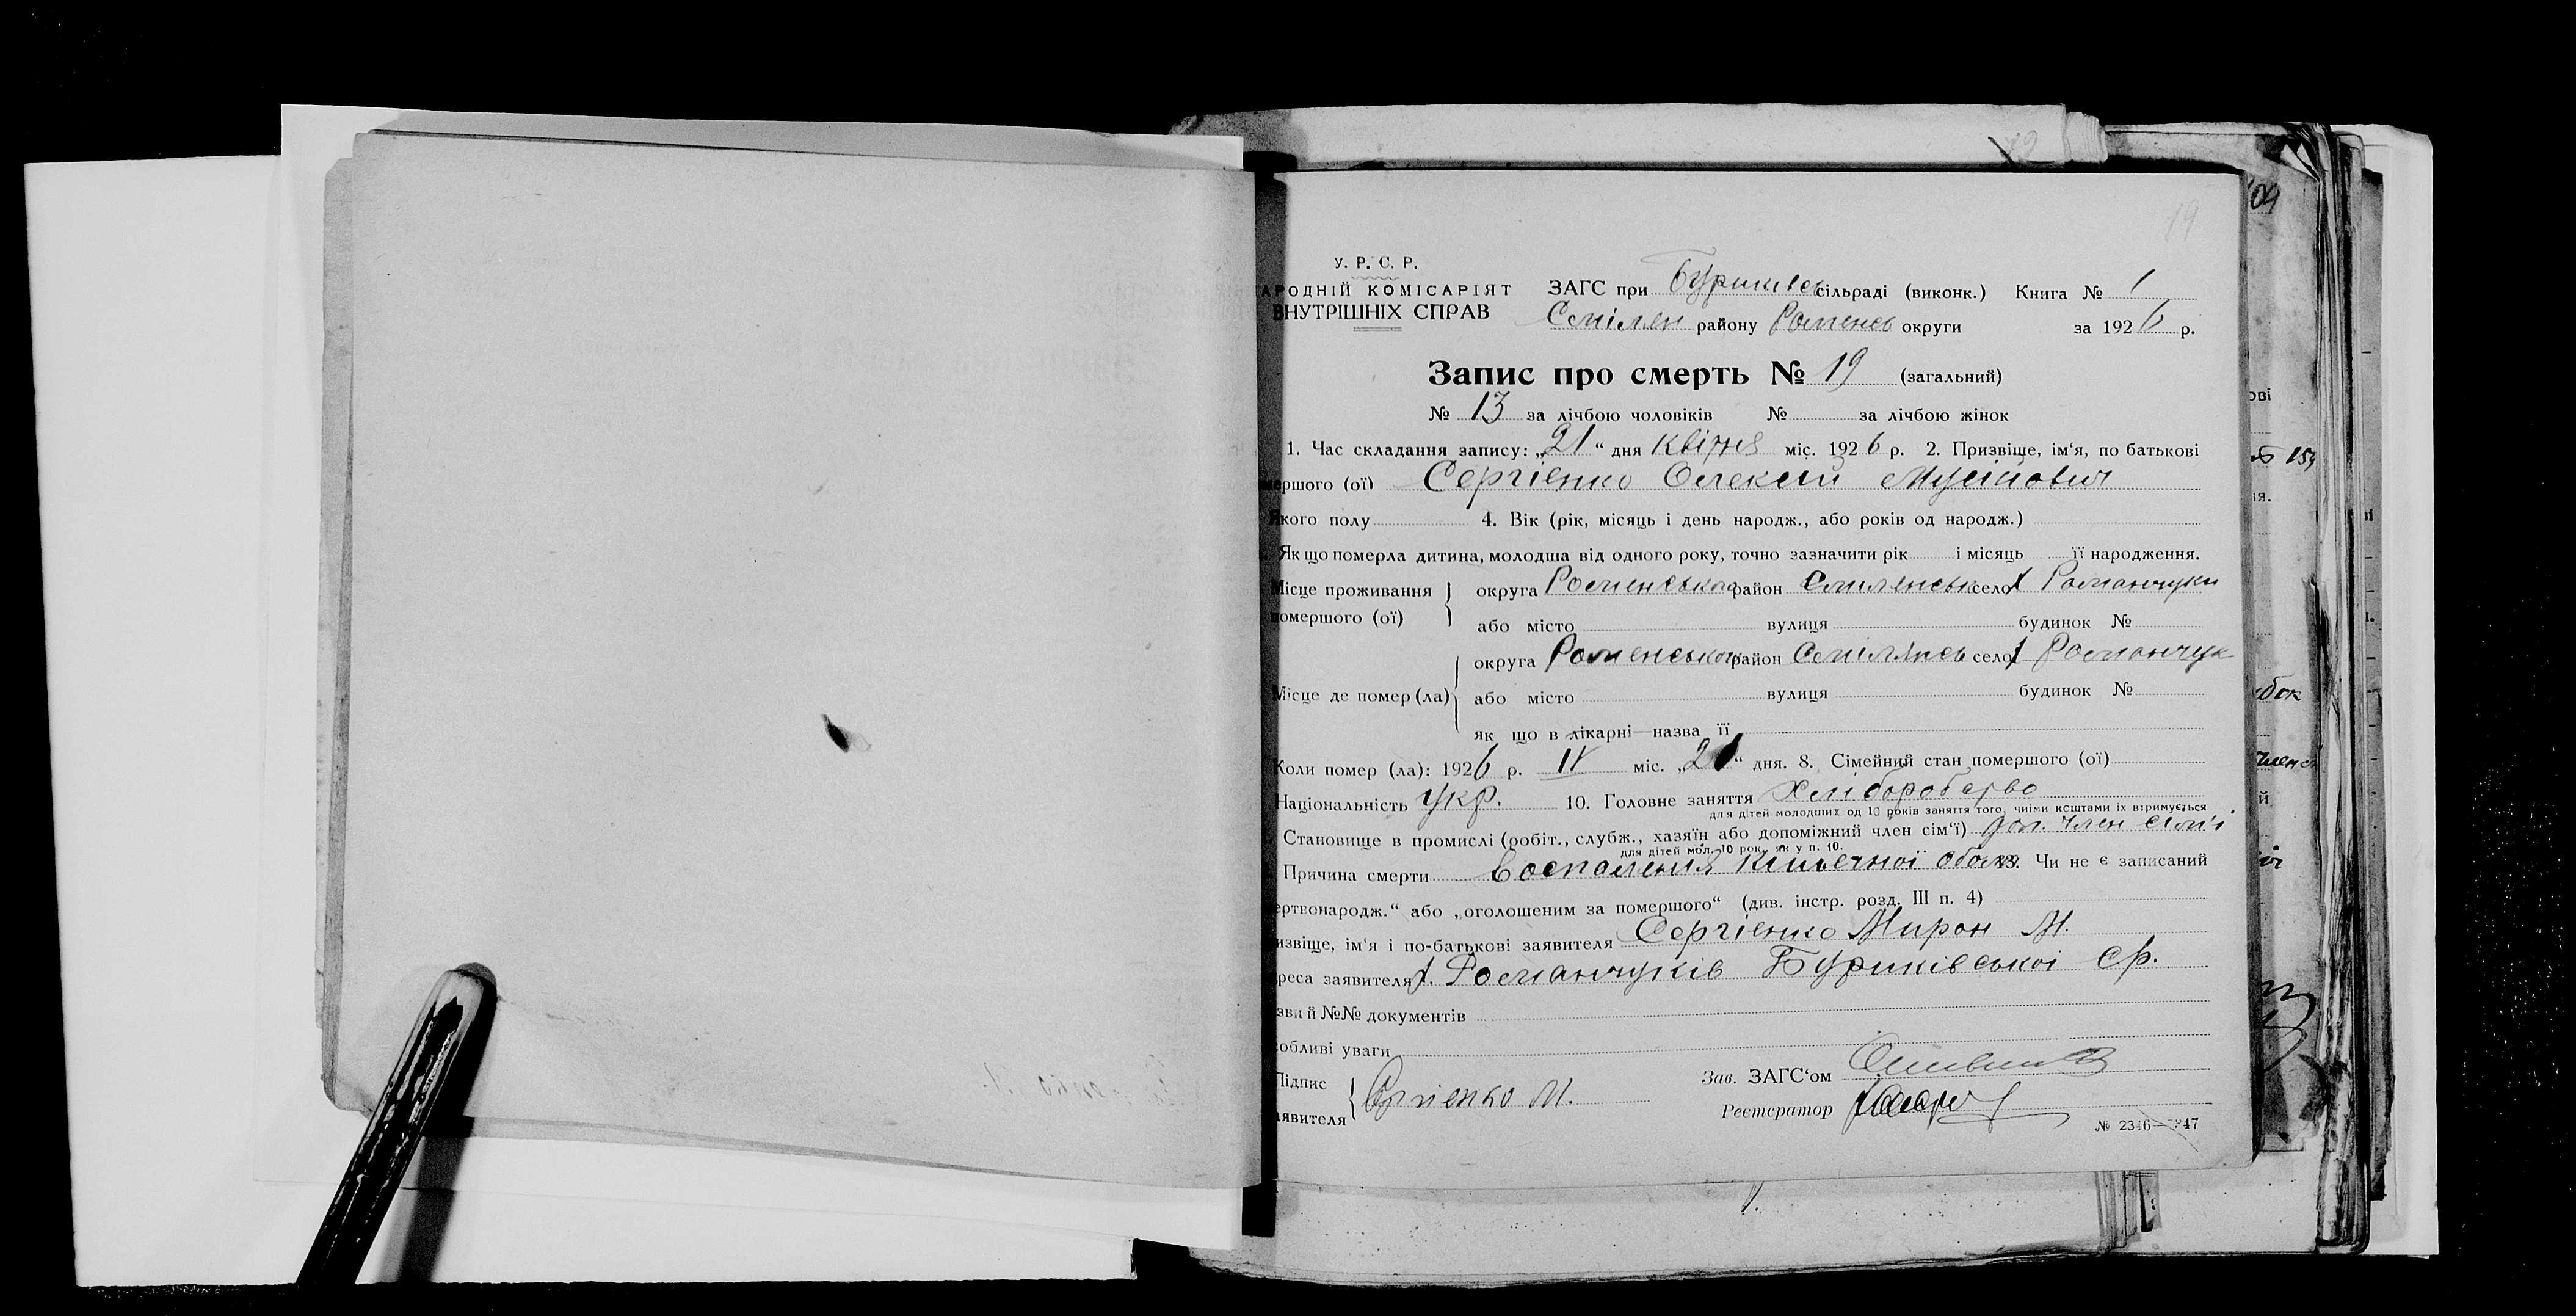 19
У. Р. С. Р.
АРОДНІЙ КОМІСАРІЯТ
ВНУТРІШНІХ СПРАВ
ЗАГС при Буриківсь сільраді (виконк.) Книга № 1
Смілян району Роменсь округи за 1926 р.
Запис про смерть № 19 (загальний)
№ 13 за лічбою чоловіків № за лічбою жінок
1. Час складання запису: „21“ дня квітня міс. 1926 р. 2. Призвіще, ім‘я, по батькові
мершого (ої) Сергієнко Олексій Мусійович
Якого полу 4. Вік (рік, місяць і день народж., або років од народж.)
Як що померла дитина, молодша від одного року, точно зазначити рік і місяць її народження.
Місце проживання помершого (ої) округа Роменського район Смілянськ село х Романчуки
або місто вулиця будинок №
Місце де помер (ла) округа Роменського район Смілянсь село х Романчук
або місто вулиця будинок №
як що в лікарні—назва її
Коли помер (ла): 1926 р. IV міс. „21“ дня. 8. Сімейний стан помершого (ої)
Національність Укр. 10. Головне заняття Хліборобство
для дітей молодших од 10 років заняття того, чиїми коштами їх втримується
Становище в промислі (робіт., слубж., хазяїн або допоміжний член сім‘ї) доп. член сім'ї
для дітей мол. 10 рок. як у п. 10.
Причина смерти Воспаления кишечної 13. Чи не є записаний
ертвонародж.“ або „оголошеним за помершого“ (див. інстр. розд. III п. 4)
извіще, ім‘я і по-батькові заявителя Сергієнко Мирон М.
реса заявителя х. Романчуків Буриківської ср.
зви й №№ документів
обливі уваги
Підпис аявителя Сергієнко М.
Зав. ЗАГС‘ом
Реєстратор
№ 2346—
47